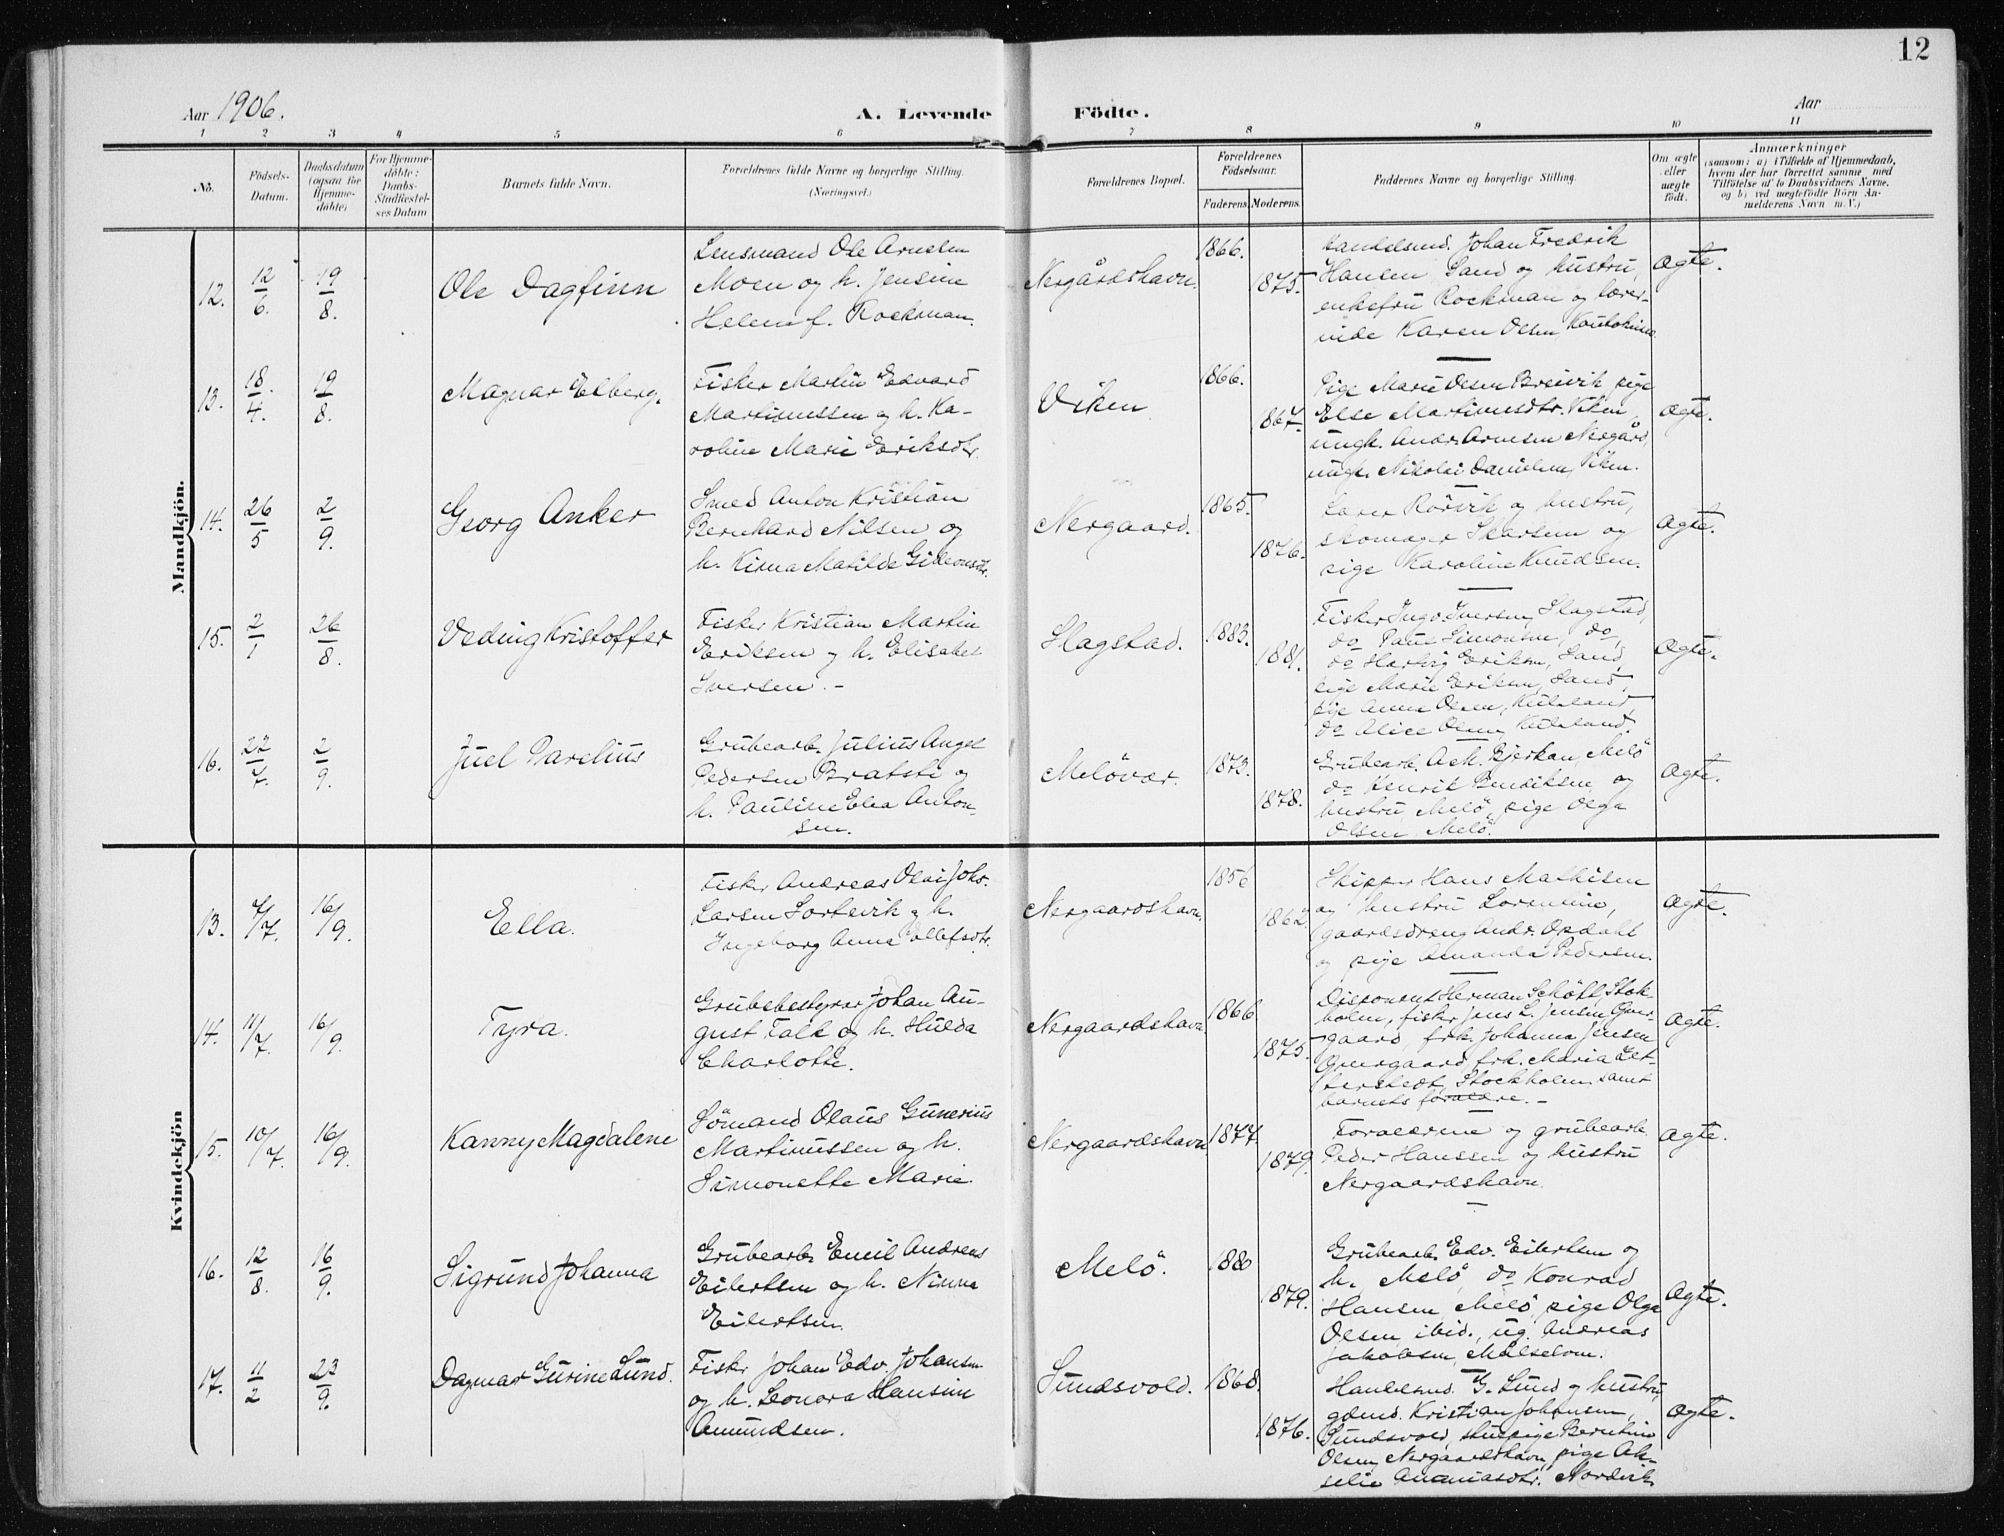 12
Aar 1906.
A. Levende
Födte.
Aar
1 2 3 4 5 6 7 8 9 10 11
No.
Födsels-
Datum.
Daabsdatum
(ogsaa for
Hjemme-
döbte)
For Hjemme-
döbte:
Daabs-
Stadfæstel-
ses Datum
Barnets fulde Navn.
Forældrenes fulde Navne og borgerlige Stilling.
(Næringsvei.)
Forældrenes Bopæl.
Forældrenes
Födselsaar.
Faderens. Moderens.
Faddernes Navne og borgerlige Stilling.
Om ægte
eller
uægte
födt.
Anmærkninger
(saasom: a) i Tilfælde af Hjemmedaab,
hvem der har forrettet samme, med
Tilföielse af to Daabsvidners Navne,
og b) ved uægtefödte Börn An-
melderens Navn m. V.)
Mandkjön.
12.
12/6.
19/8.
Ole Dagfinn
Lensmand Ole Arnesen
Moen og h. Jensine
Helene f. Rockman.
Nergårdshavn.
1866.
1875.
Handelsmd. Johan Fredrik
Hansen Sand og hustru,
enkefru Rockman og lærer-
inde Karen Olsen,
Ægte.
13.
18/4.
19/8.
Magnar Elberg.
Fisker Martin Edvard
Martinussen og h. Ka-
roline Marie Eriksdtr.
Viken
1866.
1867.
Pige Marie Olsen Breivik, pige
Else Martinusdtr. Viken,
ungk. Andr. Arnesen Nergård,
ungk. Nikolai Danielsen, Viken.
Ægte.
14.
26/5
2/9.
Georg Anker
Smed Anton Kristian
Bernhard Nilsen og
h. Kirna Matilde Gideonsdtr.
Nergaard.
1865.
1876.
Lærer Rörvik og hustru,
skomager Skarsem og
pige Karoline Knudsen.
Ægte.
15.
2/1
26/8.
Veding Kristoffer
Fisker Kristian Martin
Eriksen og h. Elisabet
Iversen. -
Slagstad.
1883.
1881.
Fisker Ingv. Iversen, Slagstad,
do Paul Simonsen, do,
do Hartvig Eriksen, Sand,
pige Marie Eriksen, Sand,
pige Anna Olsen,
do Alice Olsen,
Ægte.
16.
22/7.
2/9.
Juel Parelius
Grubearb. Julius Angel
Pedersen Bratsti og
h. Pauline Elea Anton-
sen.
Melövær.
1873.
1878.
Grubearb. A. M. Bjerkan, Melö
do Henrik Bendiksen og
hustru, Melö, pige Olga
Olsen, Melö.
Ægte.
Kvindekjön
13.
7/7.
16/9.
Ella.
Fisker Andreas Olai Johs.
Larsen Sortevik og h.
Ingeborg Anna Tollefsdtr.
Nergaardshavn.
1856
1862.
Skipper Hans Mathisen
og hustru Lorentine,
gaardsdreng Andr. Opdahl
og pige Amanda Pedersen.
Ægte.
14.
11/7.
16/9.
Tyra.
Grubebestyrer Johan Au-
gust Falk og h. Hulda
Charlotte.
Nergaardshavn
1866
1875.
Disponent Herman Schött, Stok-
holm, fisker Jens L. Jensen Over-
gaard, frk. Johanna Jensen
Overgaard, frk. Maria Zet-
terstedt, Stockholm samt
barnets forældre. -
Ægte.
15.
10/7.
16/9.
Kanny Magdalene
Sömand Olaus Gunerius
Martinussen og h.
Simonette Marie.
Nergaardshavn
1877.
1879.
Forældrene og grubearb.
Peder Hanssen og hustru
Nergaardshavn.
Ægte.
16.
12/8.
16/9.
Sigrund Johanna
Grubearb. Emil Andreas
Eilertsen og h. Ninna
Eilertsen.
Melö.
1880
1879.
Grubearb. Edv. Eilertsen og
h. Melö, do Konrad
Hansen Melö, pige Olga
Olsen ibid., ug. Andreas
Jakobsen, Målselven.
Ægte.
17.
11/2
23/9.
Dagmar Gurine Lund.
Fisker Johan Edv. Johansen
og h. Leonora Hansine
Amundsen.
Sundsvold.
1868.
1876.
Handelsmd. G. Lund og hustru,
gdmd. Kristian Johansen,
Sundsvold, stuepige Berntine
Olsen, Nergaardshavn, pige Ak-
selie Ananiasdtr. Nordvik
Ægte.